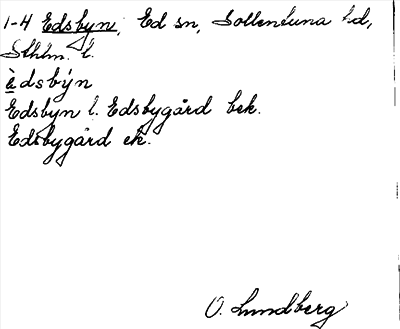 1-4 Edsbyn, Ed sn, Sollentuna hd,
Sthlm. l.
è dsbýn
Edsbyn l. Edsbygård bek.
Edsbygård ek.
O. Lundberg